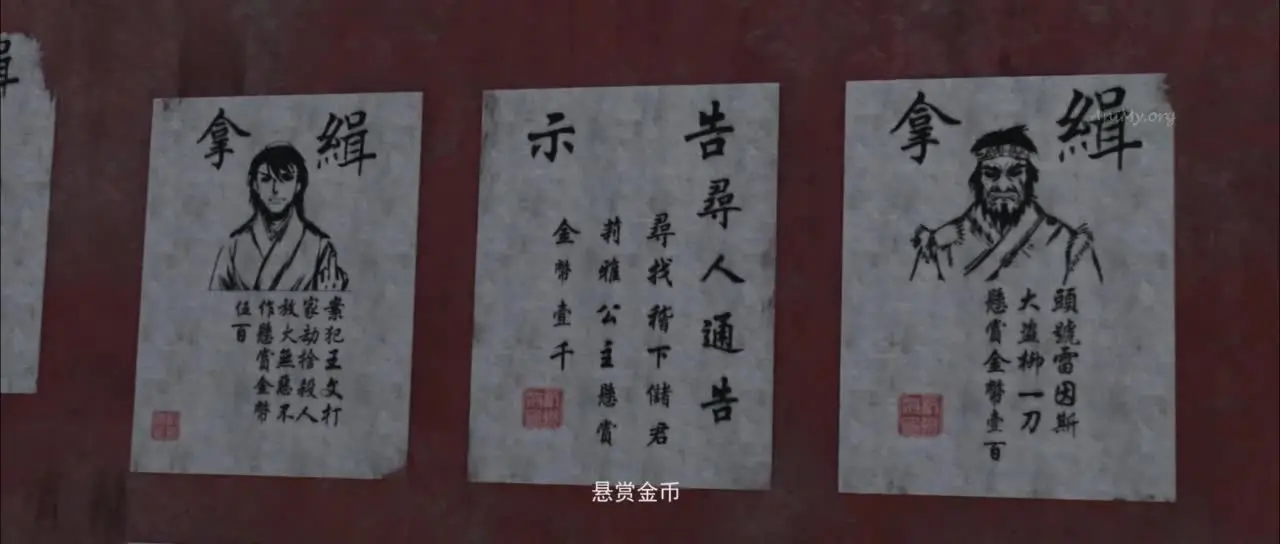 緝
緝拿
案犯王文打
家劫捨殺人
放火無惡不
作懸賞金幣
伍百
告示
尋人通告
尋找稽下儲君
莉雅公主懸賞
金幣壹千
緝拿
頭號雷因斯
大盜柳一刀
懸賞金幣壹百
AniMy.org
悬赏金币